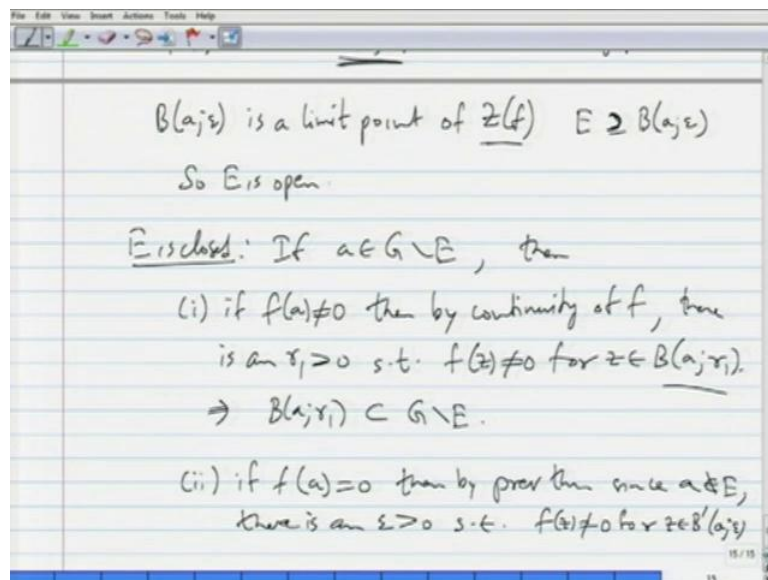 File Edit View Insert Actions Tools Help
B(a;ε) is a limit point of Z(f) E ⊇ B(a;ε)
So E is open.
E is closed: If a ∈ G \ E, then
(i) if f(a)≠0 then by continuity of f, there
is an r₁>0 s.t. f(z)≠0 for z ∈ B(a;r₁).
⇒ B(a;r₁) ⊂ G\E.
(ii) if f(a)=0 then by prev thm since a∉E,
there is an ε>0 s.t. f(z)≠0 for z∈B'(a;ε)
15/15
15